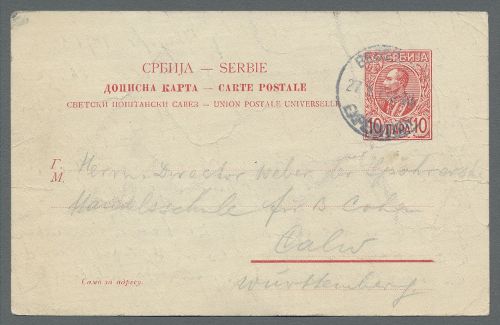 СРБИЈА — SERBIE
ДОПИСНА КАРТА — CARTE POSTALE
СВЕТСКИ ПОШТАНСКИ САВЕЗ — UNION POSTALE UNIVERSELLE
СРБИЈА
27
10 ПАРА 10
Г.
М.
Herrn Director Weber der
Handelsschule für
Calw
Württemberg
Само за адресу.